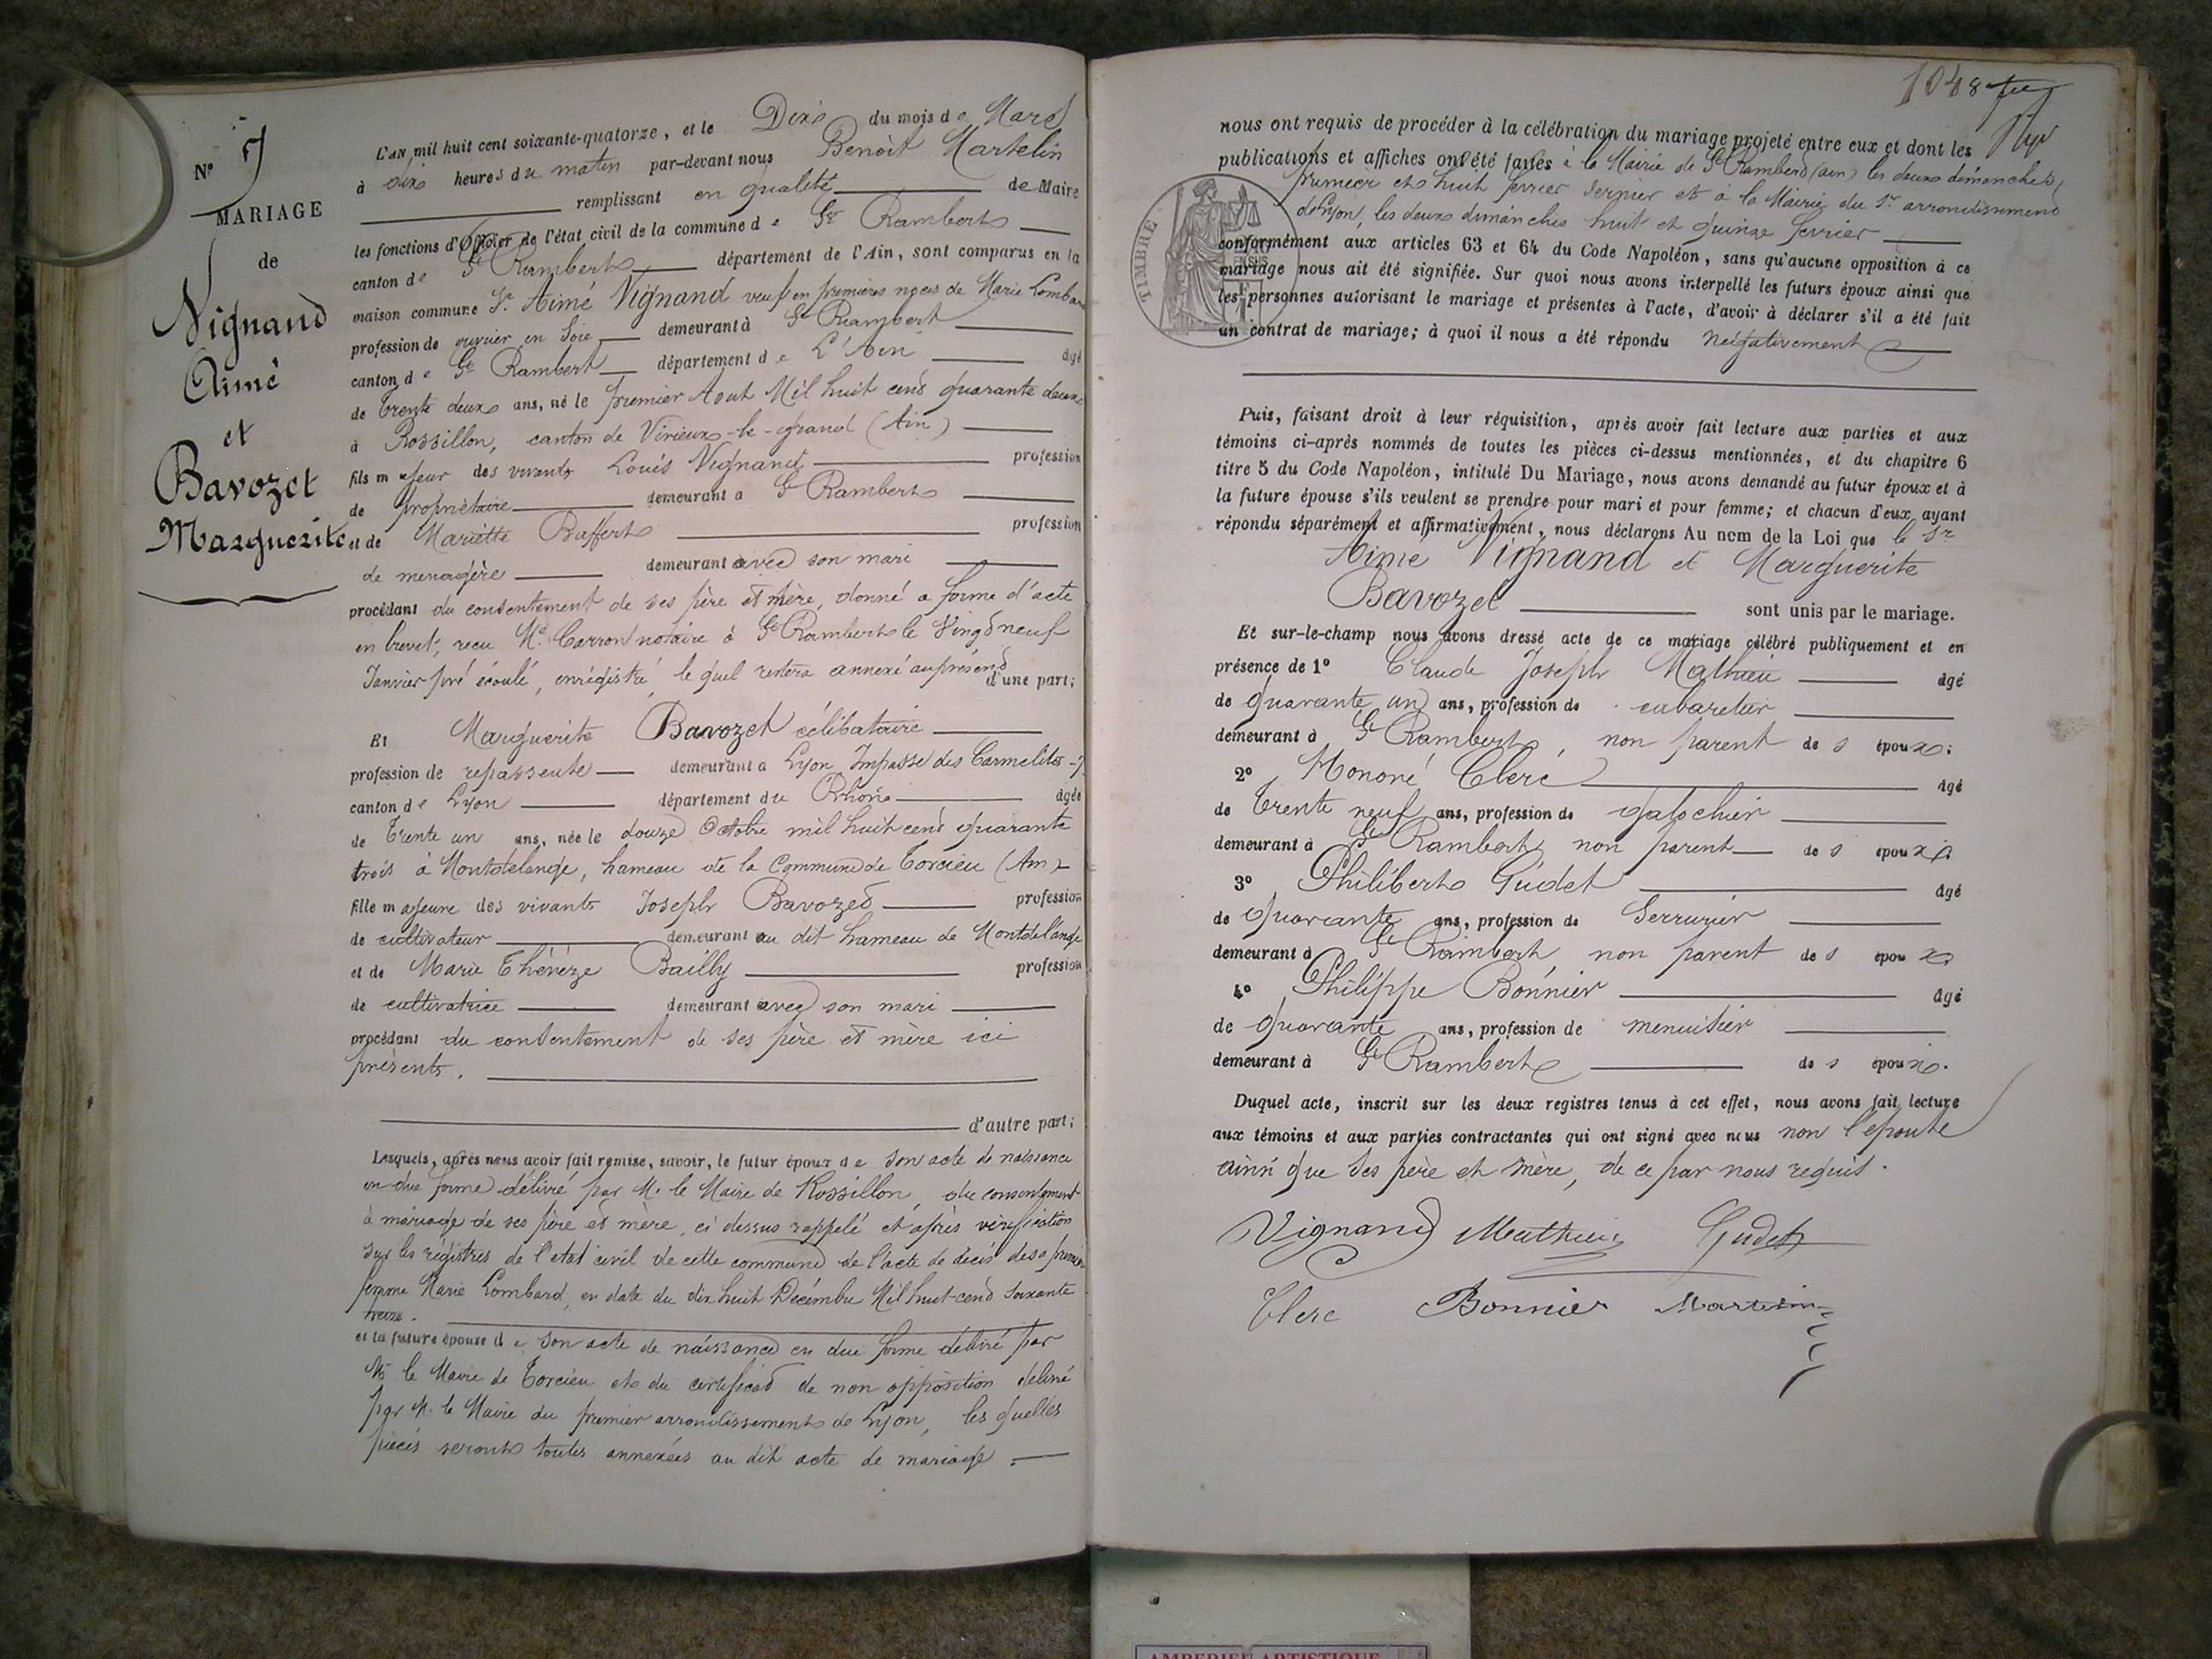 N° 5
MARIAGE
de
Vignand
Aimé
et
Bavozet
Marguerite
L'AN mil huit cent soixante-quatorze, et le Dix du mois de Mars
à dix heures du matin par-devant nous Benoit Martelin
remplissant en qualité de Maire
les fonctions d'Officier de l'état civil de la commune de St Rambert
canton de St Rambert département de l'Ain, sont comparus en la
maison commune Sr. Aimé Vignand veuf en premières noces de Marie Lombard
profession de ouvrier en soie demeurant à St Rambert
canton de St Rambert département de L'Ain âgé
de trente deux ans, né le premier Aout Mil huit cent quarante deux
à Rossillon, canton de Virieux-le-grand (Ain)
fils majeur des vivants Louis Vignand profession
de propriétaire demeurant a St Rambert
et de Mariette Buffert profession
de menagère demeurant avec son mari
procédant du consentement de ses père et mère, donné a forme d'acte
en brevet, recu Me Carron notaire à St Rambert le Vingt neuf
Janvier pré écoulé, enrégistré, le quel restera annexé au présent
d'une part;
Et Marguerite Bavozet célibataire
profession de repasseuse demeurant a Lyon Impasse des Carmelites 7
canton de Lyon département du Rhone âgée
de Trente un ans, née le douze Octobre mil huit cent quarante
trois à Montdelange, hameau de la Commune de Torcieu (Ain)
fille majeure des vivants Joseph Bavozet profession
de cultivateur demeurant au dit hameau de Montdelange
et de Marie Thérèze Bailly profession
de cultivatrice demeurant avec son mari
procédant du consentement de ses père et mère ici
présents.
d'autre part;
Lesquels, après nous avoir fait remise, savoir, le futur époux de son acte de naissance
en due forme délivré par M. le Maire de Rossillon, du consentement
à mariage de ses père et mère, ci dessus rappelé et après vérification
sur les régistres de l'etat civil de cette commune de l'acte de décès de sa première
femme Marie Lombard, en date du dix huit Décembre Mil huit-cent soixante
treize.
et la future épouse de son acte de naissance en due forme délivré par
M. le Maire de Torcieu et du certificat de non opposition délivré
par M. le Maire du premier arrondissement de Lyon, les quelles
pièces seront toutes annexées au dit acte de mariage.
104
8
nous ont requis de procéder à la célébration du mariage projeté entre eux et dont les
publications et affiches ont été faites à la Mairie de St Rambert (ain) les deux dimanches,
premier et huit fevrier dernier et à la Mairie du 1er arrondissement
de Lyon, les deux dimanches huit et quinze fevrier
conformément aux articles 63 et 64 du Code Napoléon, sans qu'aucune opposition à ce
mariage nous ait été signifiée. Sur quoi nous avons interpellé les futurs époux ainsi que
les personnes autorisant le mariage et présentes à l'acte, d'avoir à déclarer s'il a été fait
un contrat de mariage; à quoi il nous a été répondu Négativement
TIMBRE
Puis, faisant droit à leur réquisition, après avoir fait lecture aux parties et aux
témoins ci-après nommés de toutes les pièces ci-dessus mentionnées, et du chapitre 6
titre 5 du Code Napoléon, intitulé Du Mariage, nous avons demandé au futur époux et à
la future épouse s'ils veulent se prendre pour mari et pour femme; et chacun d'eux ayant
répondu séparément et affirmativement, nous déclarons Au nom de la Loi que le Sr
Aime Vignand et Marguerite
Bavozet sont unis par le mariage.
Et sur-le-champ nous avons dressé acte de ce mariage célébré publiquement et en
présence de 1° Claude Joseph Mathieu âgé
de quarante un ans, profession de cabaretier
demeurant à St Rambert, non parent des époux;
2° Honoré Clerc âgé
de Trente neuf ans, profession de galochier
demeurant à St Rambert non parent des époux
3° Philibert Gudet âgé
de quarante ans, profession de Serrurier
demeurant à St Rambert non parent des époux
4° Philippe Bonnier âgé
de quarante ans, profession de menuisier
demeurant à St Rambert des époux.
Duquel acte, inscrit sur les deux registres tenus à cet effet, nous avons fait lecture
aux témoins et aux parties contractantes qui ont signé avec nous non l'epouse
ainsi que ses père et mère, de ce par nous requis.
Vignand Mathieu Gudet
Clerc Bonnier Martelin
AMBERIEU ARTISTIQUE